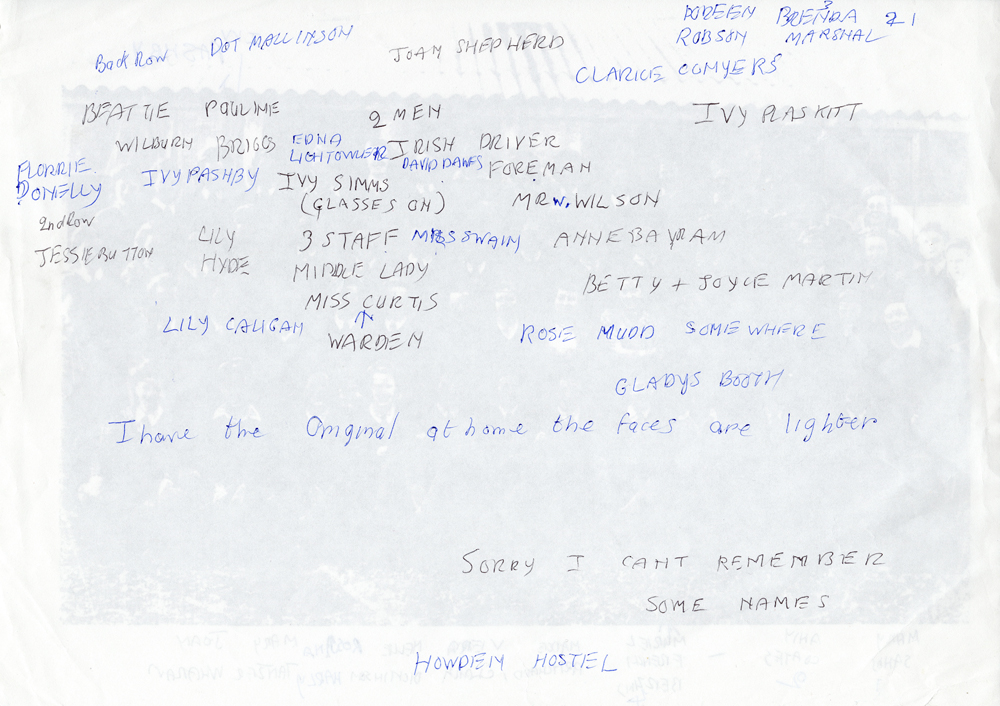 DOREEN BRENDA 21
3
ROBSON MARSHAL
Back Row DOT MALLINSON JOAN SHEPHERD
CLARICE COMYERS
BEATTIE PAULINE 2 MEN IVY PLASKITT
WILBURN BRIGGS EDNA IRISH DRIVER
LIGHTOWLER DAVID DAWES FOREMAN
FLORRIE.
DONELLY IVY PASHBY IVY SIMMS
(GLASSES ON) MR W. WILSON
2nd Row
JESSIE BUTTON LILY 3 STAFF MISS SWAIN ANNE BAYRAM
HYDE MIDDLE LADY
BETTY + JOYCE MARTIN
MISS CURTIS
LILY CALIGAN ↑ ROSE MUDD SOMEWHERE
WARDEN
GLADYS BOOTH
I have the Original at home the faces are lighter
SORRY I CANT REMEMBER
SOME NAMES
HOWDEN HOSTEL